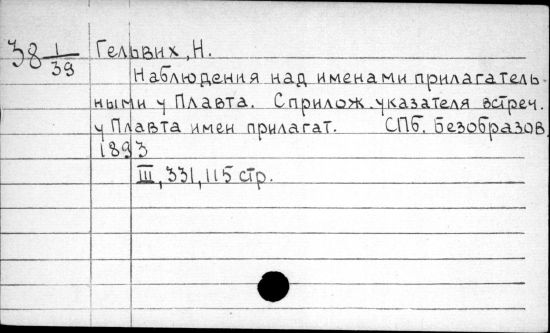 38 1/39 Гельвих, Н.
Наблюдения над именами прилагатель
ными у Плавта. С прилож. указателя встреч.
у Плавта имен прилагат. СПб. Безобразов.
1893
III, 331, 115 стр.